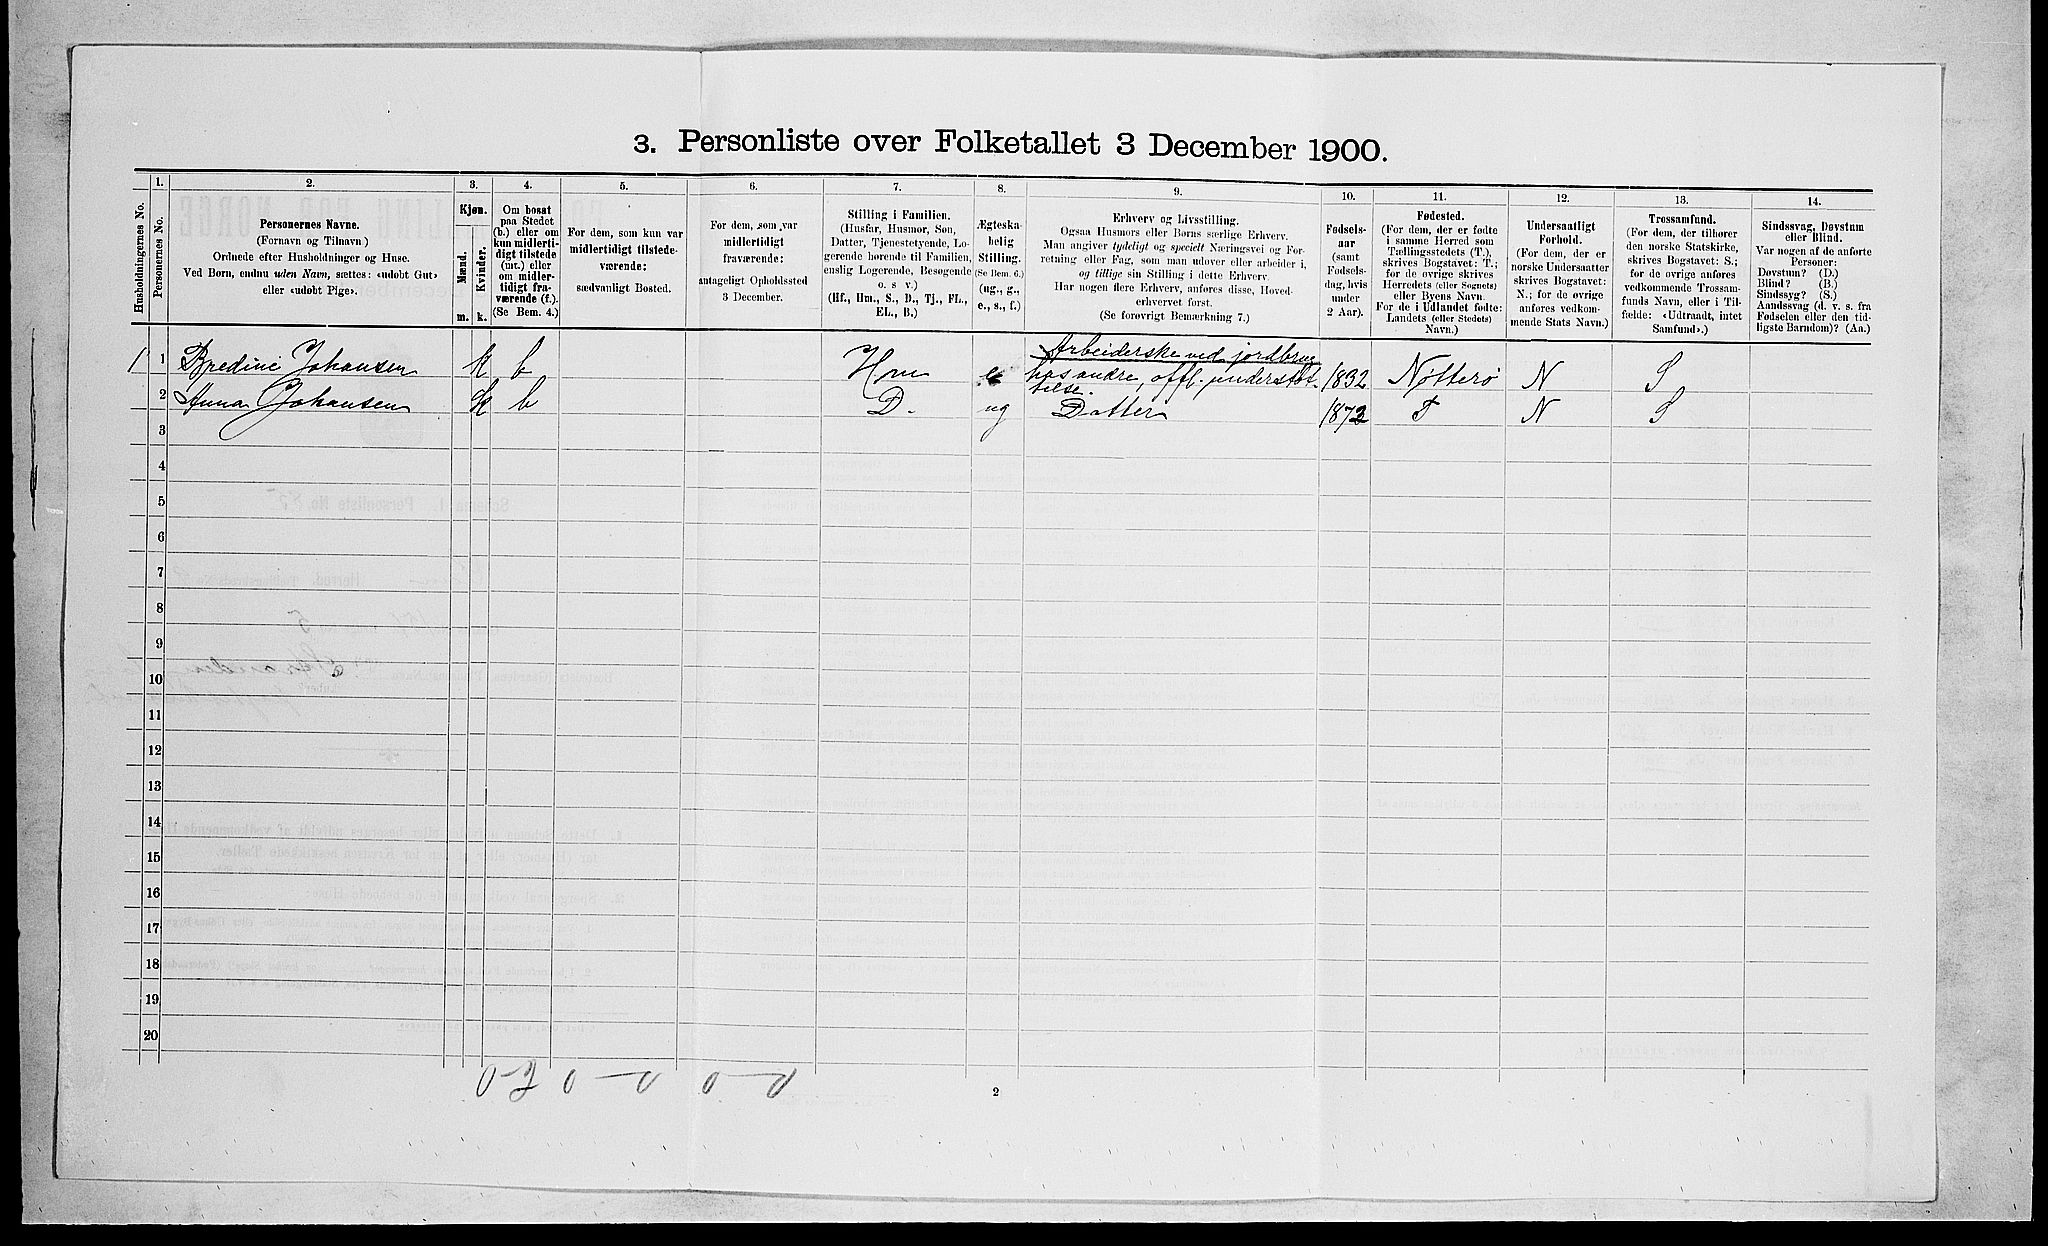 3. Personliste over Folketallet 3 December 1900.
1. 2. 3. 4. 5. 6. 7. 8. 9. 10. 11. 12. 13. 14.
Husholdningernes No.
Personernes No.
Personernes Navne.
(Fornavn og Tilnavn)
Ordnede efter Husholdninger og Huse.
Ved Børn, endnu uden Navn, sættes: «udøbt Gut»
eller «udøbt Pige».
Kjøn.
Mænd.
Kvinder.
m. k.
Om bosat
paa Stedet
(b.) eller om
kun midlerti-
digt tilstede
(mt.) eller
om midler-
tidigt fra-
værende (f.).
(Se Bem. 4.)
For dem, som kun var
midlertidigt tilstede-
værende:
sædvanligt Bosted.
For dem, som var
midlertidigt
fraværende:
antageligt Opholdssted
3 December.
Stilling i Familien.
(Husfar, Husmor, Søn,
Datter, Tjenestetyende, Lo-
gerende hørende til Familien,
enslig Logerende, Besøgende
o. s v.)
(Hf., Hm., S., D., Tj., FL.,
EL., B.)
Ægteska-
belig
Stilling.
(Se Bem. 6.)
(ug., g.,
e., s., f.)
Erhverv og Livsstilling.
Ogsaa Husmors eller Børns særlige Erhverv.
Man angiver tydeligt og specielt Næringsvei og For-
retning eller Fag, som man udøver eller arbeider i,
og tillige sin Stilling i dette Erhverv.
Har nogen flere Erhverv, anføres disse, Hoved-
erhvervet først.
(Se forøvrigt Bemærkning 7.)
Fødsels-
aar
(samt
Fødsels-
dag, hvis
under
2 Aar).
Fødested.
(For dem, der er fødte
i samme Herred som
Tællingsstedets (T.),
skrives Bogstavet: T.;
for de øvrige skrives
Herredets (eller Sognets)
eller Byens Navn.
For de i Udlandet fødte:
Landets (eller Stedets)
Navn.)
Undersaatligt
Forhold.
(For dem, der er
norske Undersaatter
skrives Bogstavet:
N.; for de øvrige
anføres vedkom-
mende Stats Navn.)
Trossamfund.
(For dem, der tilhører
den norske Statskirke,
skrives Bogstavet: S.;
for de øvrige anføres
vedkommende Trossam-
funds Navn, eller i Til-
fælde: «Udtraadt, intet
Samfund».)
Sindssvag, Døvstum
eller Blind.
Var nogen af de anførte
Personer:
Døvstum? (D.)
Blind? (B.)
Sindssyg? (S.)
Aandssvag (d. v. s. fra
Fødselen eller den tid-
ligste Barndom)? (Aa.)
Arbeiderske ved jordbrug
1 1 Bredine Johansen k b Hm e hos andre, offl. understøt- 1832 Nøtterø N S
telse.
2 Anna Johansen k b D. ug Datter 1873 T N S
3
4
5
6
7
8
9
10
11
12
13
14
15
16
17
18
19
20
2